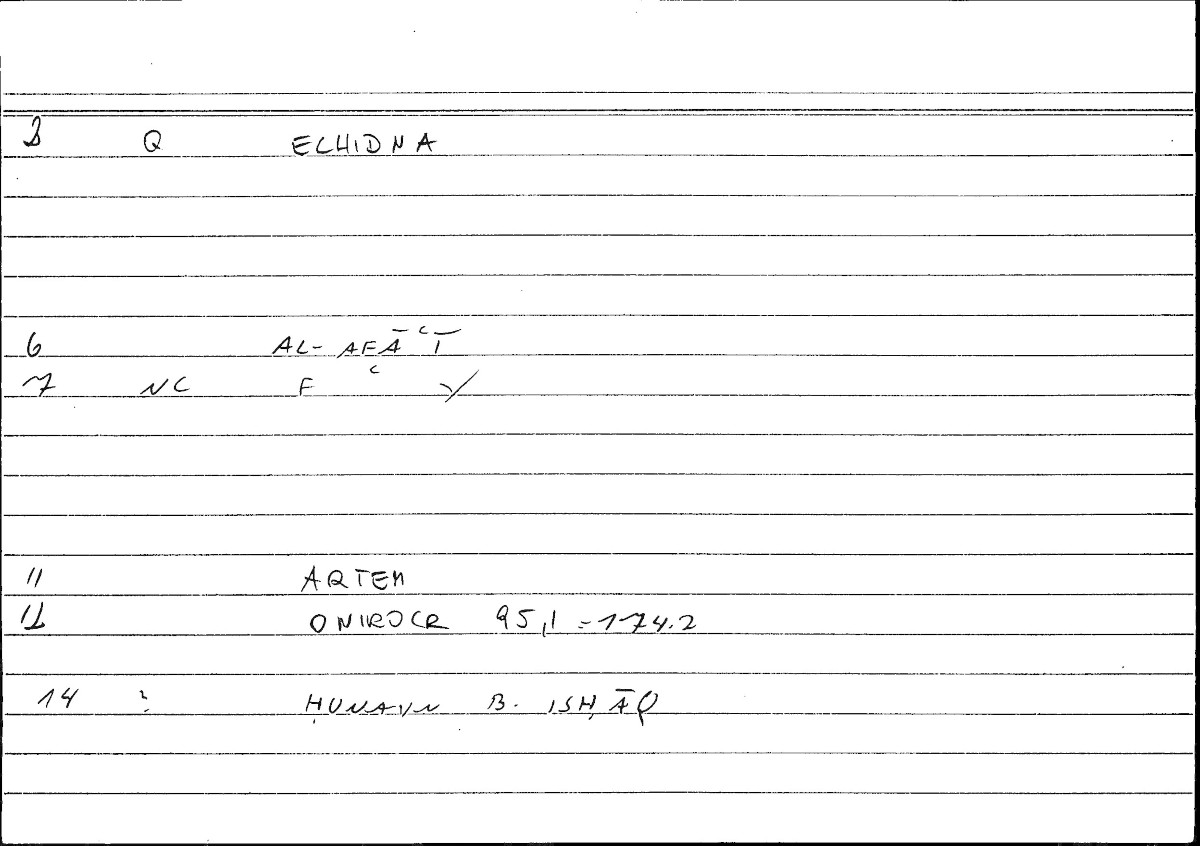 3 Q ECHIDNA
6 AL-AFĀʿĪ
7 NC F ʿ Y
11 ARTEM
12 ONIROCR 95,1 = 174.2
14 ? ḤUNAYN B. ISḤĀQ